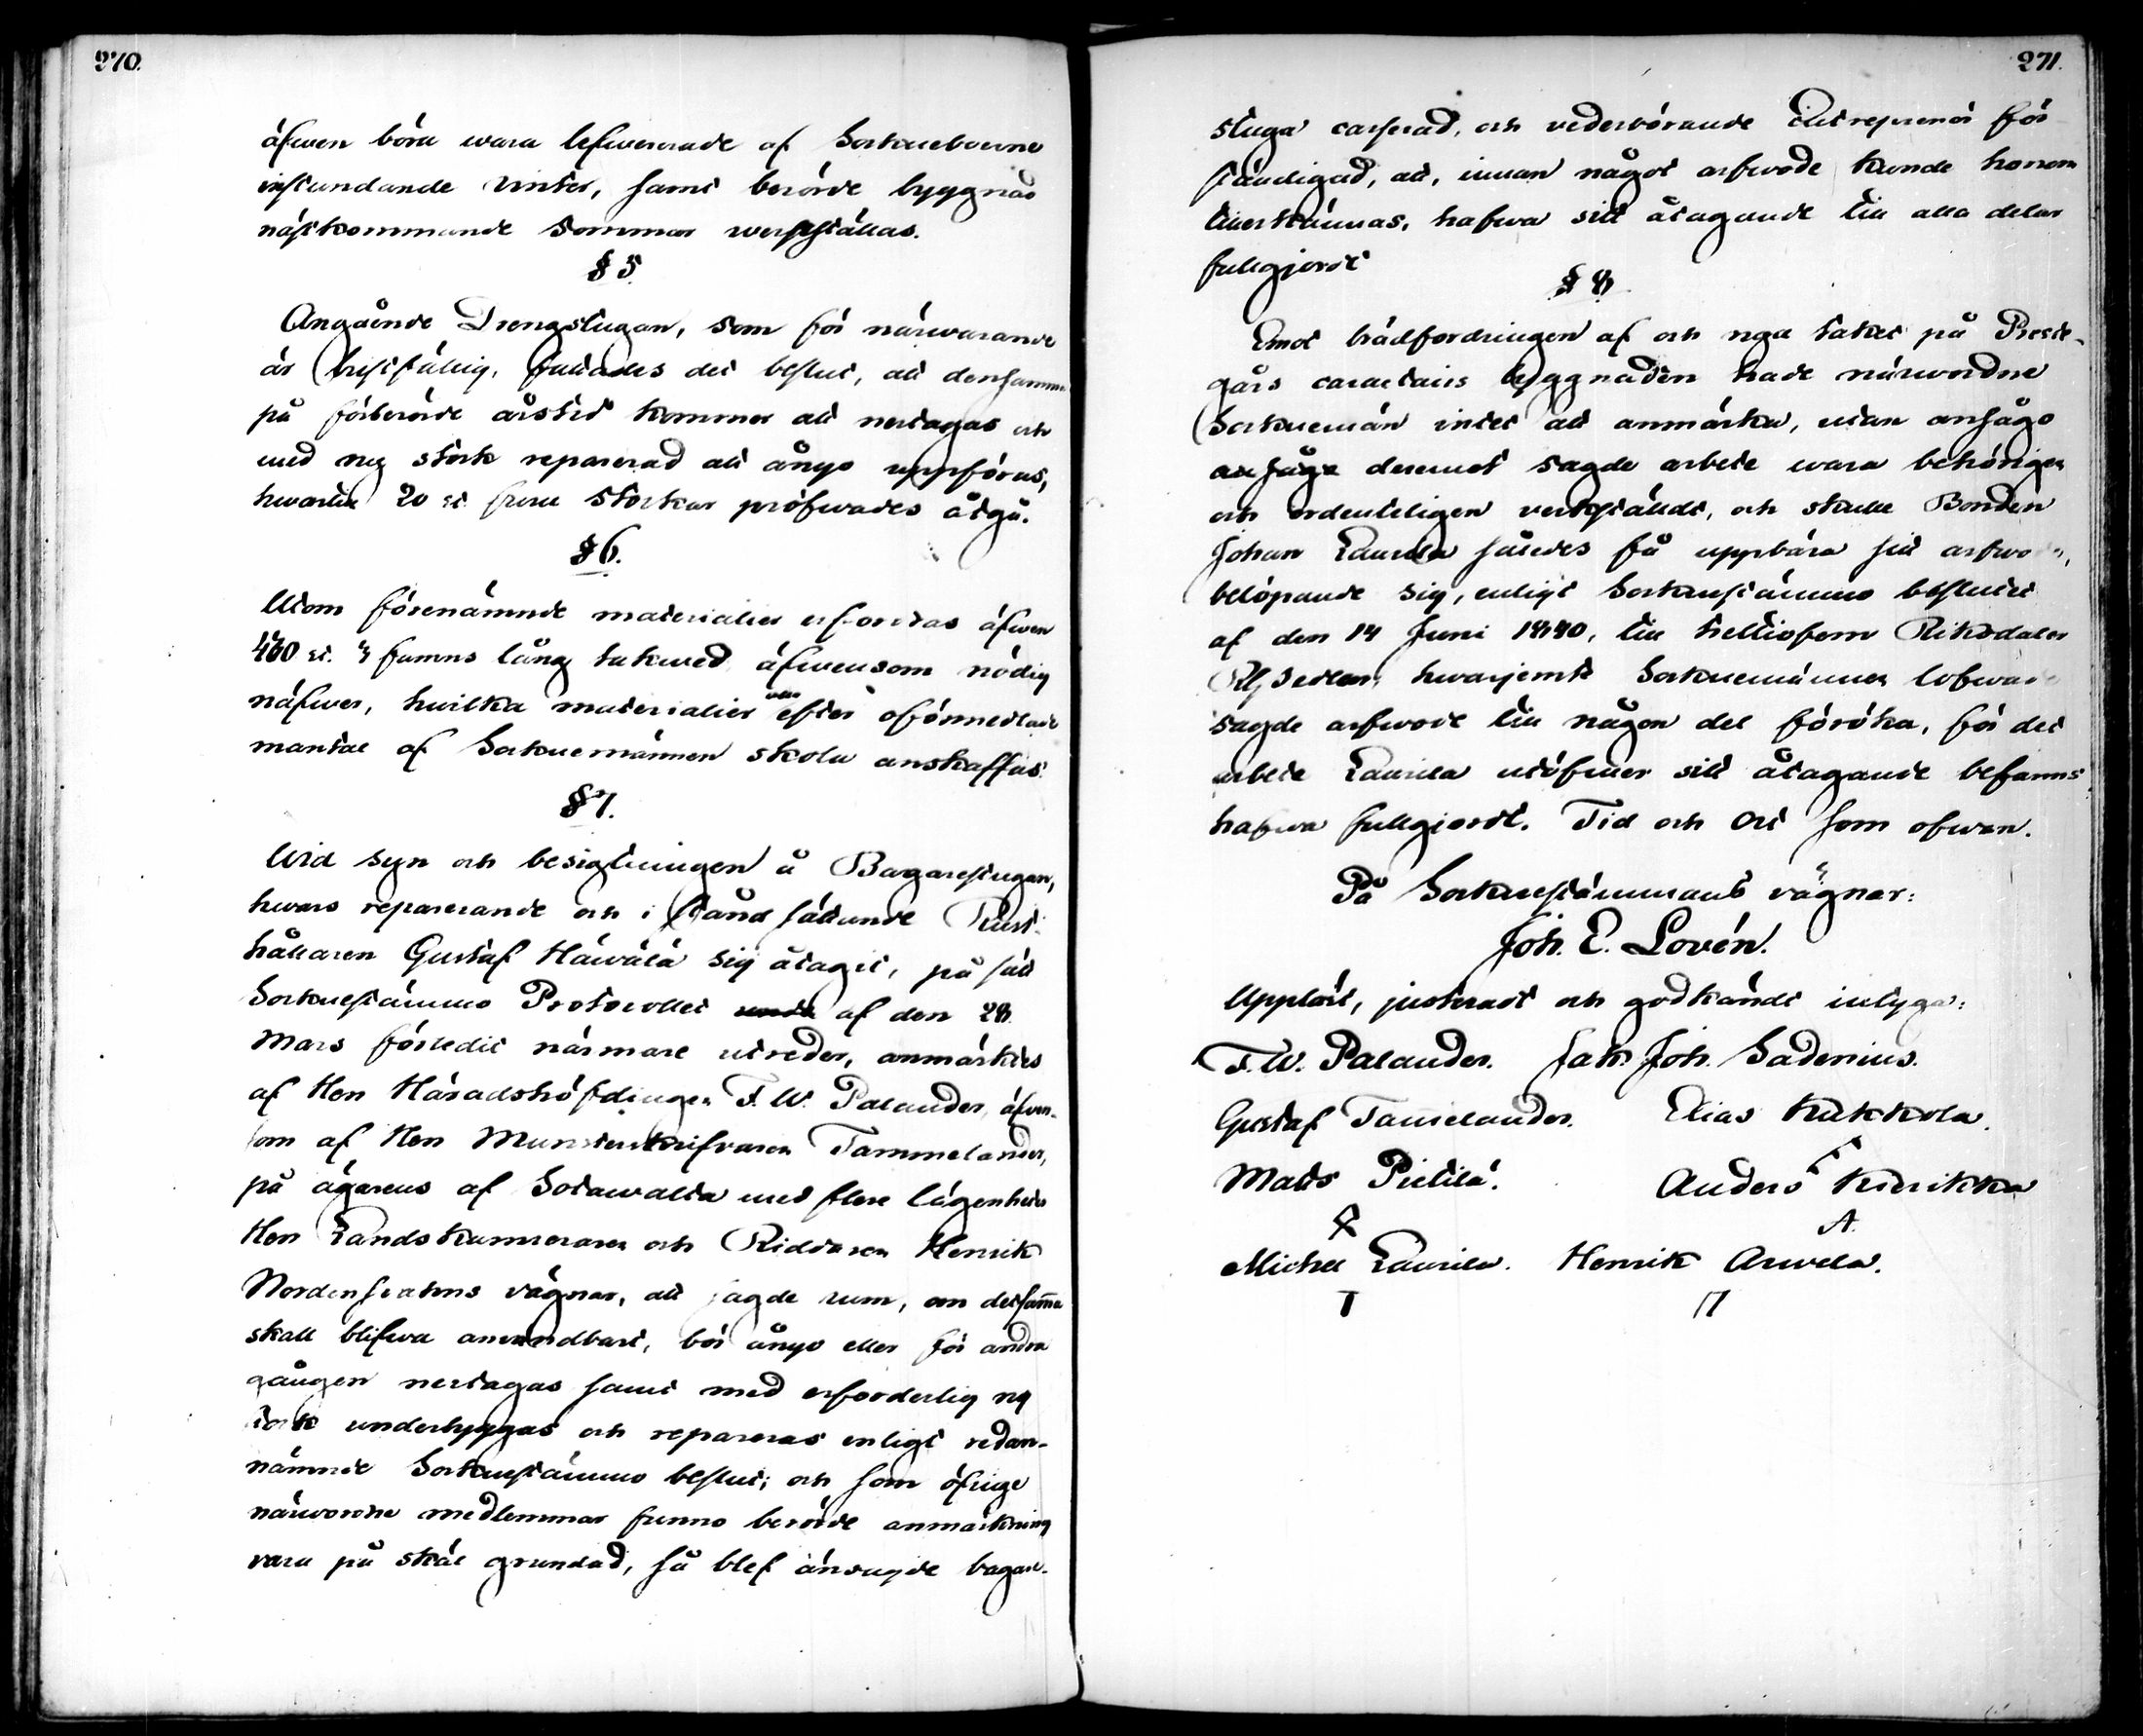 270.
äfwen böra wara lefwererade af Sockneboerne
instundande vinter, samt berörde byggnad
nästkommande Sommar werkställas.
§ 5.
Angående Drengstugan, som för närwarande
är bristfällig, fattades det beslut, att densamma
på förberörde årstid kommer att nertagas och
med ny stock reparerad att ånyo uppföras,
hwartill 20 st. furu Stockar pröfwades åtgå.
§ 6.
Utom förenämnde materialier erfordras äfwen
460 st. 4 famns lång takwed, äfwensom nödig
näfwer, hvilka materialier efter oförmedlade
mantal af Socknemännen skola anskaffas.
§ 7.
Wid syn och besigtningen å Bagarestugan,
hwars reparerande och i stånd sättande Rust-
hållaren Gustaf Häwälä sig åtagit, på sätt
Socknestämmo Protocollet af den 28
Mars förledit närmare utreder, anmärktes
af Herr Häradshöfdingen F. W. Palander, äfven-
som af Herr Munsterskrifvaren Tammelander,
på ägarens af Sotawalta med flere lägenheter
Herr Landskamreraren och Riddaren Henrik
Nordenswahns vägnar, att sagde rum, om detsamma
skall blifwa användbart, bör ånyo eller för andra
gången nertagas samt med erforderlig ny
stock underbyggas och repareras enligt redan-
nämnde Socknestämmo beslut; och som öfrige
närwordne medlemmar funno berörde anmärkning
vara på skäl grundad, så blef änsagde bagare-
271.
stuga casserad, och vederbörande Entreprenör för-
ständigad, att, innan något arfwode kunde honom
tillerkännas, hafwa sitt åtagande till alla delar
fullgjordt
§ 8
Emot brädfordringen af och nya taket på Prest-
gårs caractairs byggnaden hade närwordne
Socknemän intet att anmärka, utan ansågo
ansågo deremot sagde arbete wara behörigen
och ordenteligen verkställdt, och skulle Bonden
Johan Laurila således få uppbära sitt arfwode,
belöpande sig, enligt Socknestämmo beslutet
af den 14 Juni 1840, till trettiofem Riksdaler
Rgs Sedlar, hwarjemte Socknemännen lofwade
sagde arfwode till någon del föröka, för det
arbete Laurila utöfwer sitt åtagande befanns
hafwa fullgjordt. Tid och Ort som ofwan.
På Socknestämmans vägnar:
Joh. E. Lovén.
Uppläst, justeradt och godkändt intyga:
F. W. Palander. Jak. Joh. Sadenius.
Gustaf Tamelander. Elias Kukkola.
Matts Pietilä. Anders Kierikka
A.
Michel Laurila. Henrik Arwela.
T